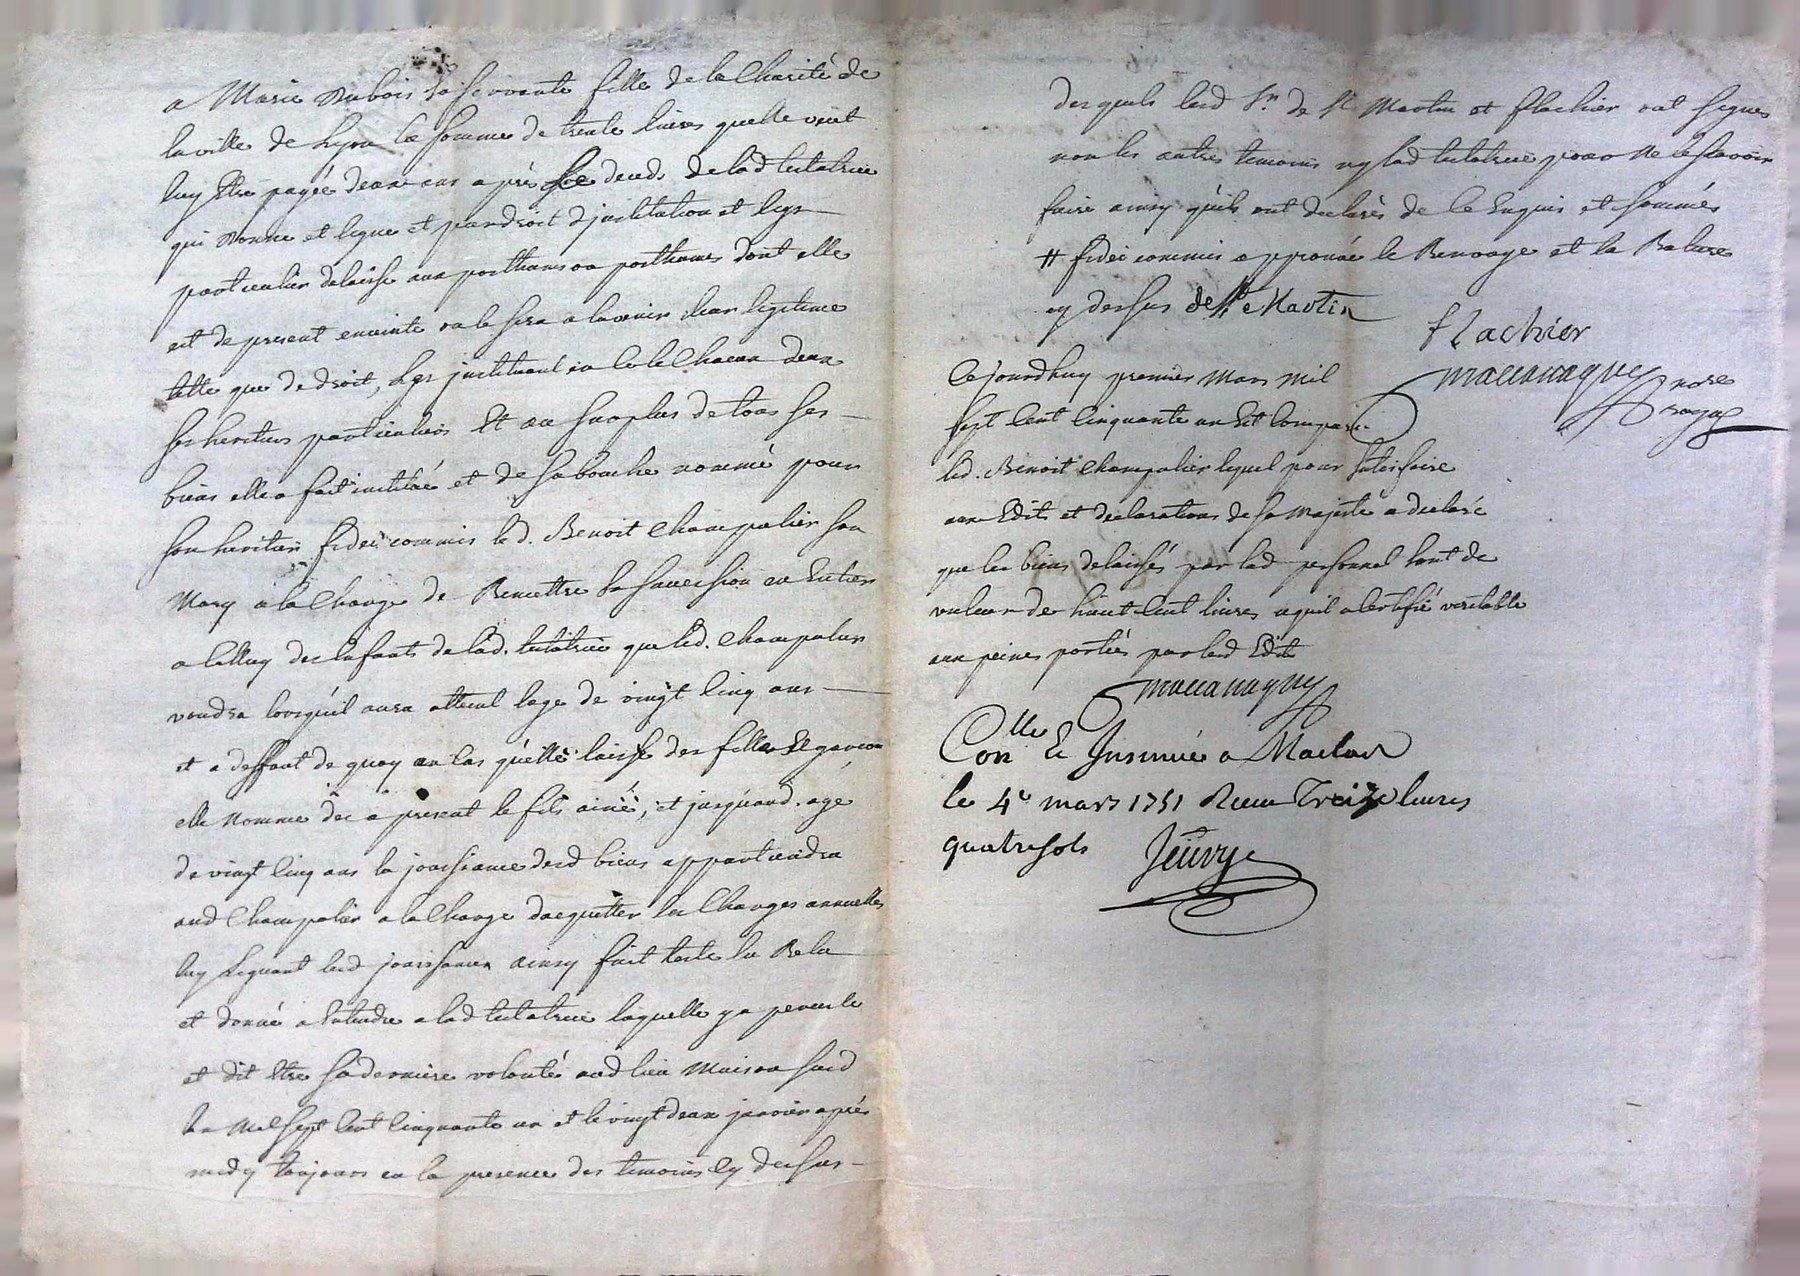 a Marie Dubois sa servante fille de la Charité de
la ville de Lyon la somme de trente livres quelle veut
luy Etre payée deux ans après le deceds de lad testatrice
qui donne et legue et par droit d'jnstitution et legs
particulier delaisse aux posthumes ou posthumes dont elle
est de present enceinte ou le sera a lavenir leur legitime
telle que de droit, les jnstituant en ce le chacun deux
ses heritiers particuliers Et au surplus de tous ses
biens elle a fait institué et de sa bouche nommé pour
son heritier fideicommis led. Benoit Champalier son
Mary a la Charge de Remettre sa succession en Entier
a celluy des Enfants de lad. testatrice que led. Champalier
voudra lorsquil aura atteint lage de vingt cinq ans
et a deffaut de quoy au cas quelle laisse des filles Et garcon
elle nomme des a present le fils ainé, et jusquaud. age
de vingt cinq ans la jouissance desd biens appartiendra
aud Champalier a la Charge dacquitter les Charges annuelles
luy leguant lesd jouissances ainsy fait testé lu Relu
et donné a Entendre a lad testatrice laquelle y a perceveré
et dit Etre sa derniere volonté aud lieu Maison susd
La Mil sept Cent Cinquante un et le vingt deux janvier après
midy toujours en la presence des temoins Cy dessus
des quels lesd Sr. de St Martin et flachier ont signés
non les autres temoins ny lad testatrice pour ne le scavoir
faire ainsy quils ont declarés de ce Enquis et sommés
# fidei commis approuvée le Renvoye et la Rature
cy dessus de St Martin
flachier
Ce jourdhuy premier Mars Mil
sept Cent Cinquante un Est Comparu
led. Benoit Champalier lequel pour satisfaire
aux Edits et declarations de sa majesté a declaré
que les biens delaissés par lad personne sont de
valeur de huit Cent livres cequil a Certifié veritable
aux peines portées par lesd Edits
Conlle Et Jnsinué a Maclas
le 4e mars 1751 Receu Treize livres
quatre sols